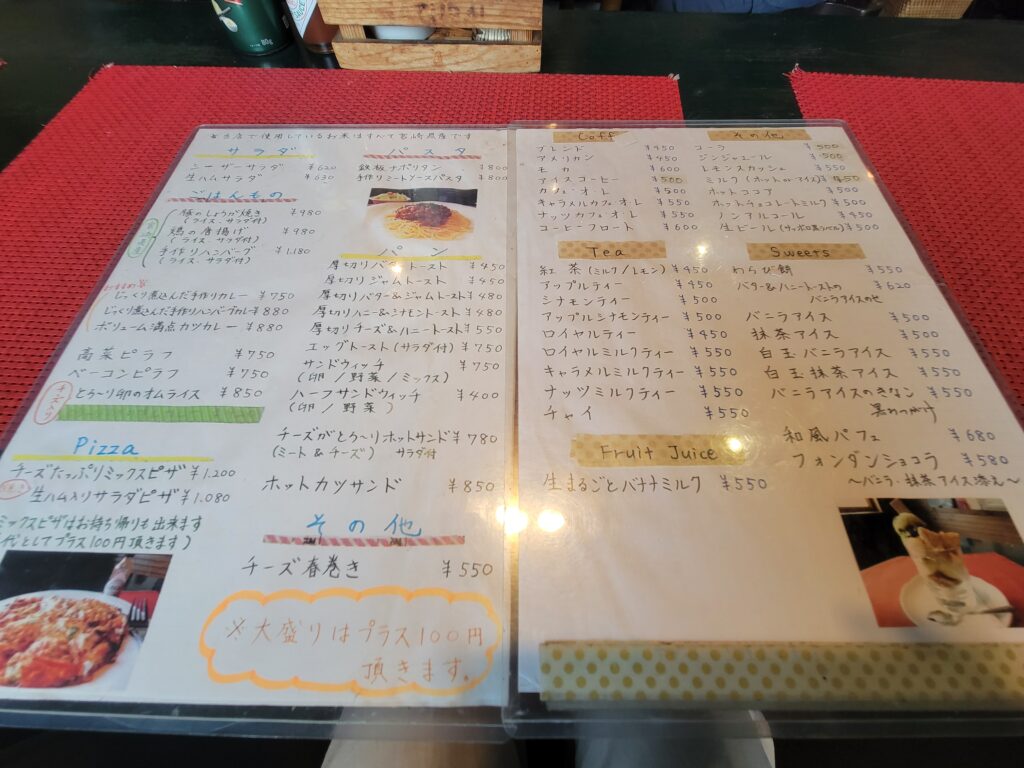 ※当店で使用しているお米はすべて宮崎県産です
サラダ
シーザーサラダ ¥620
生ハムサラダ ¥630
ごはんもの
豚のしょうが焼き ¥980
(ライス、サラダ付)
鶏の唐揚げ ¥980
(ライス、サラダ付)
手作りハンバーグ ¥1,180
(ライス、サラダ付)
じっくり煮込んだ手作りカレー ¥750
じっくり煮込んだ手作りハンバーグカレー ¥880
ボリューム満点カツカレー ¥880
高菜ピラフ ¥750
ベーコンピラフ ¥750
とろ〜り卵のオムライス ¥850
Pizza
チーズたっぷりミックスピザ ¥1.200
生ハム入りサラダピザ ¥1.080
ミックスピザはお持ち帰りも出来ます
代としてプラス100円頂きます)
パスタ
鉄板ナポリタン ¥800
手作りミートソースパスタ ¥800
パン
厚切りバタートースト ¥450
厚切りジャムトースト ¥450
厚切りバター&ジャムトースト ¥480
厚切りハニー&シナモントースト ¥480
厚切りチーズ&ハニートースト ¥550
エッグトースト(サラダ付) ¥750
サンドウィッチ ¥750
(卵/野菜/ミックス)
ハーフサンドウィッチ ¥400
(卵/野菜)
チーズがとろ〜りホットサンド ¥780
(ミート&チーズ) サラダ付
ホットカツサンド ¥850
その他
チーズ春巻き ¥550
※大盛りはプラス100円
頂きます。
Coff
ブレンド ¥450
アメリカン ¥450
モカ ¥600
アイスコーヒー ¥500
カフェ・オ・レ ¥500
キャラメルカフェオ・レ ¥550
ナッツカフェオ・レ ¥550
コーヒーフロート ¥600
その他
コーラ ¥500
ジンジャエール ¥500
レモンスカッシュ ¥550
ミルク(ホットorアイス) ¥450
ホットココア ¥500
ホットチョコレートミルク ¥500
ノンアルコール ¥450
生ビール ¥500
Tea
紅茶(ミルク/レモン) ¥450
アップルティー ¥450
シナモンティー ¥500
アップルシナモンティー ¥500
ロイヤルティー ¥450
ロイヤルミルクティー ¥550
キャラメルミルクティー ¥550
ナッツミルクティー ¥550
チャイ ¥550
Fruit Juice
生まるごとバナナミルク ¥550
Sweets
わらび餅 ¥550
バター&ハニートーストの ¥620
バニラアイスのせ
バニラアイス ¥500
抹茶アイス ¥500
白玉バニラアイス ¥550
白玉抹茶アイス ¥550
バニラアイスのきなこ ¥550
黒みつがけ
和風パフェ ¥680
フォンダンショコラ ¥580
〜バニラ・抹茶アイス添え〜